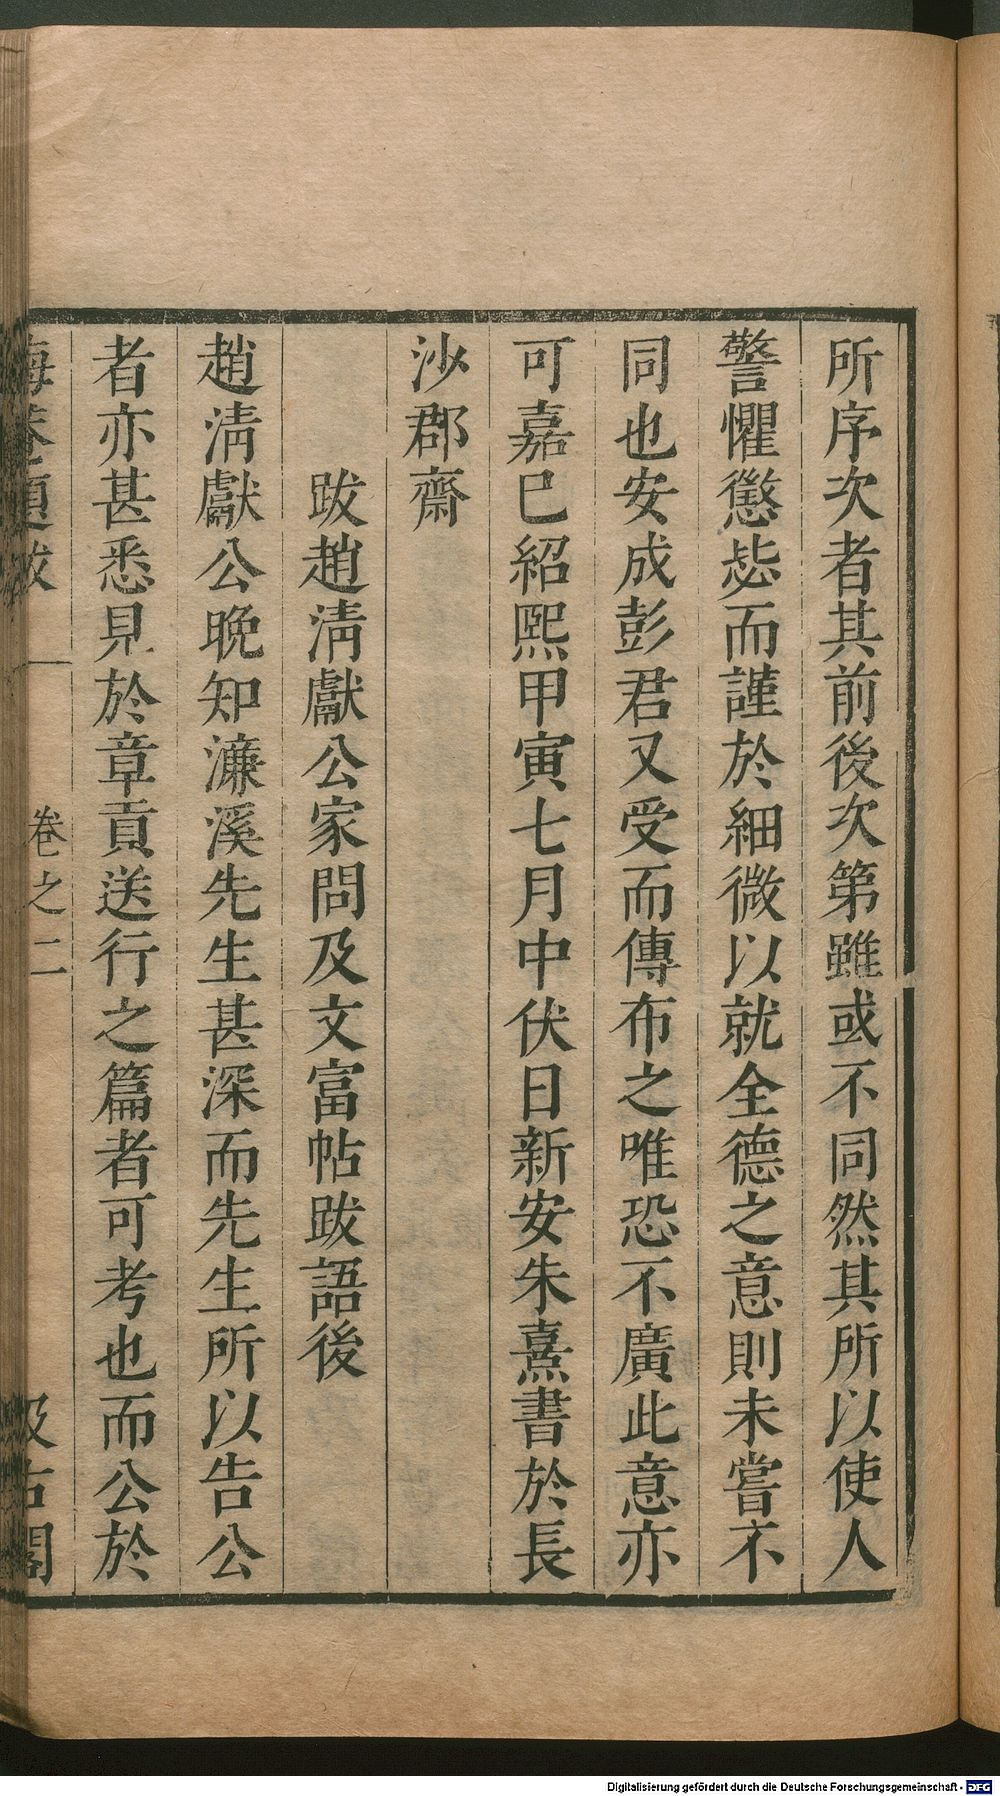 所序次者其前後次第雖或不同然其所以使人
警懼懲毖而謹於細微以就全德之意則未嘗不
同也安成彭君又受而傳布之唯恐不廣此意亦
可嘉已紹熙甲寅七月中伏日新安朱熹書於長
沙郡齋
跋趙清獻公家問及文富帖跋語後
趙清獻公晚知濂溪先生甚深而先生所以告公
者亦甚悉見於章貢送行之篇者可考也而公於
晦菴題跋 卷之二 汲古閣
Digitalisierung gefördert durch die Deutsche Forschungsgemeinschaft - DFG